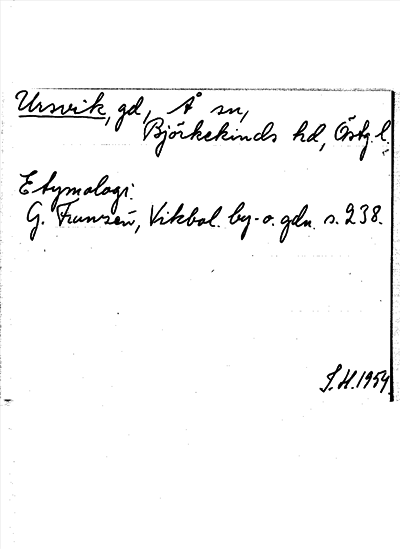 Ursvik, gd, Å sn,
Björkekinds hd, Östg. l.
Etymologi:
G. Franzén, Vikbol. by- o. gdn. s. 238.
S.H. 1954.